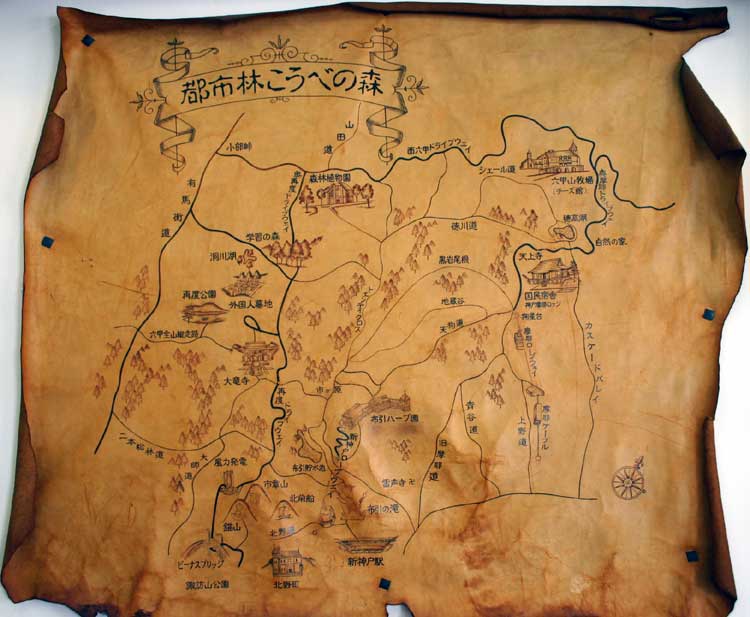 都市林こうべの森
山田道
小部峠
西六甲ドライブウェイ
有馬街道
シェール道
六甲山牧場
(チーズ館)
森林植物園
穂高湖
徳川道
学習の森
自然の家
天上寺
洞川湖
黒岩尾根
国民宿舎
再度公園
外国人墓地
地蔵谷
掬星台
六甲全山縦走路
天狗道
カスケードバレイ
摩耶ロープウェイ
大竜寺
市ヶ原
再度ドライブウェイ
布引ハーブ園
青谷道
上野道
摩耶ケーブル
旧摩耶道
二本松林道
大師道
風力発電
布引貯水池
雷声寺 卍
市章山
北 船
布引の滝
錨山
北野道
ビーナスブリッジ
新神戸駅
諏訪山公園
北野町